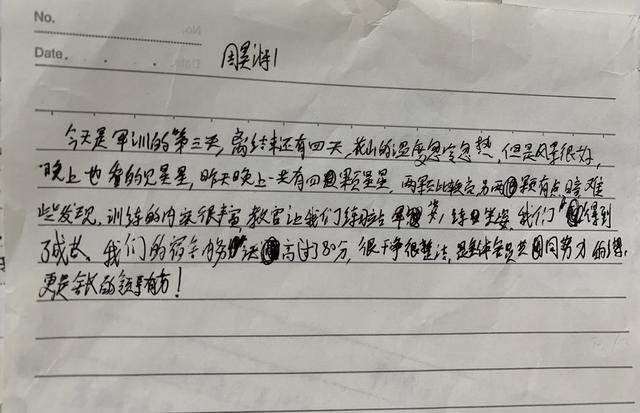 No.
Date.
周昊
今天是军训的第三天,离结束还有四天,山的温度忽冷忽热,但是风景很好,
晚上也看的见星星,昨天晚上一共有四颗星星 两颗比较亮另两颗有点暗难
些发现.训练的内容很丰富 教官让我们练站军姿,练坐姿,我们得到
了成长.我们的宿舍内务还高过了80分,很干净很整洁,是全体舍员共同努力的结果,
更是舍长的领导有方!